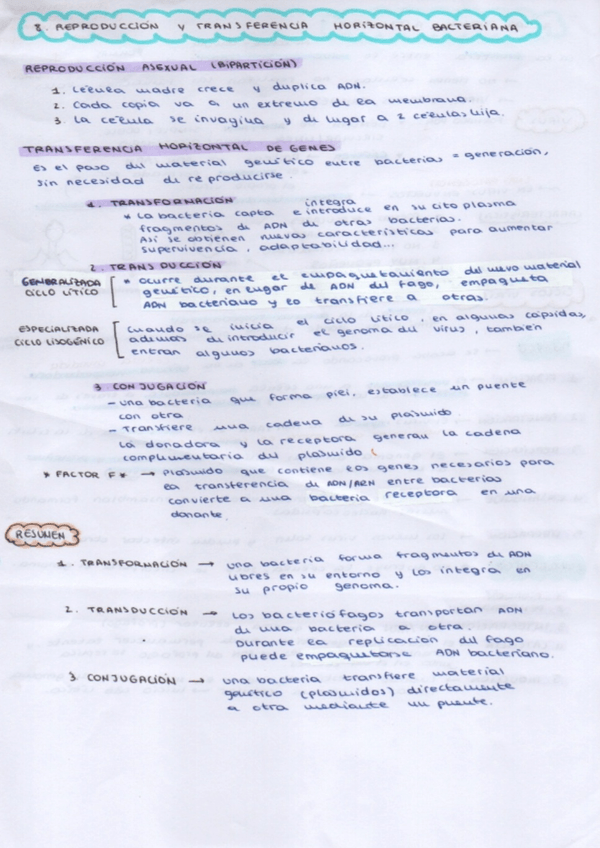 8. REPRODUCCIÓN Y TRANSFERENCIA HORIZONTAL BACTERIANA
REPRODUCCIÓN ASEXUAL (BIPARTICIÓN)
1. Célula madre crece y duplica ADN.
2. Cada copia va a un extremo de la membrana.
3. La célula se invagina y da lugar a 2 células hija.
TRANSFERENCIA HORIZONTAL DE GENES
Es el paso del material genético entre bacterias = generación,
sin necesidad de reproducirse.
1. TRANSFORMACIÓN
integra
* La bacteria capta e introduce en su citoplasma
fragmentos de ADN de otras bacterias.
Así se obtienen nuevas características para aumentar
supervivencia, adaptabilidad...
2. TRANSDUCCIÓN
GENERALIZADA
CICLO LÍTICO
* Ocurre durante el empaquetamiento del nuevo material
genético, en lugar de ADN del fago, empaqueta
ADN bacteriano y lo transfiere a otras.
ESPECIALIZADA
CICLO LISOGÉNICO
Cuando se inicia el ciclo lítico, en algunas cápsidas,
además de introducir el genoma del virus, también
entran algunos bacterianos.
3 CONJUGACIÓN
- Una bacteria que forma pieli, establece un puente
con otra.
- Transfiere una cadena de su plásmido.
La donadora y la receptora generan la cadena
complementaria del plásmido
* FACTOR F* → Plásmido que contiene los genes necesarios para
la transferencia de ADN/ARN entre bacterias
convierte a una bacteria receptora en una
donante.
RESUMEN
1. TRANSFORMACIÓN → una bacteria forma fragmentos de ADN
libres en su entorno y los integra en
su propio genoma.
2. TRANSDUCCIÓN → Los bacteriófagos transportan ADN
de una bacteria a otra.
Durante la replicación del fago
puede empaquetarse ADN bacteriano.
3 CONJUGACIÓN → una bacteria transfiere material
genético (plásmidos) directamente
a otra mediante un puente.